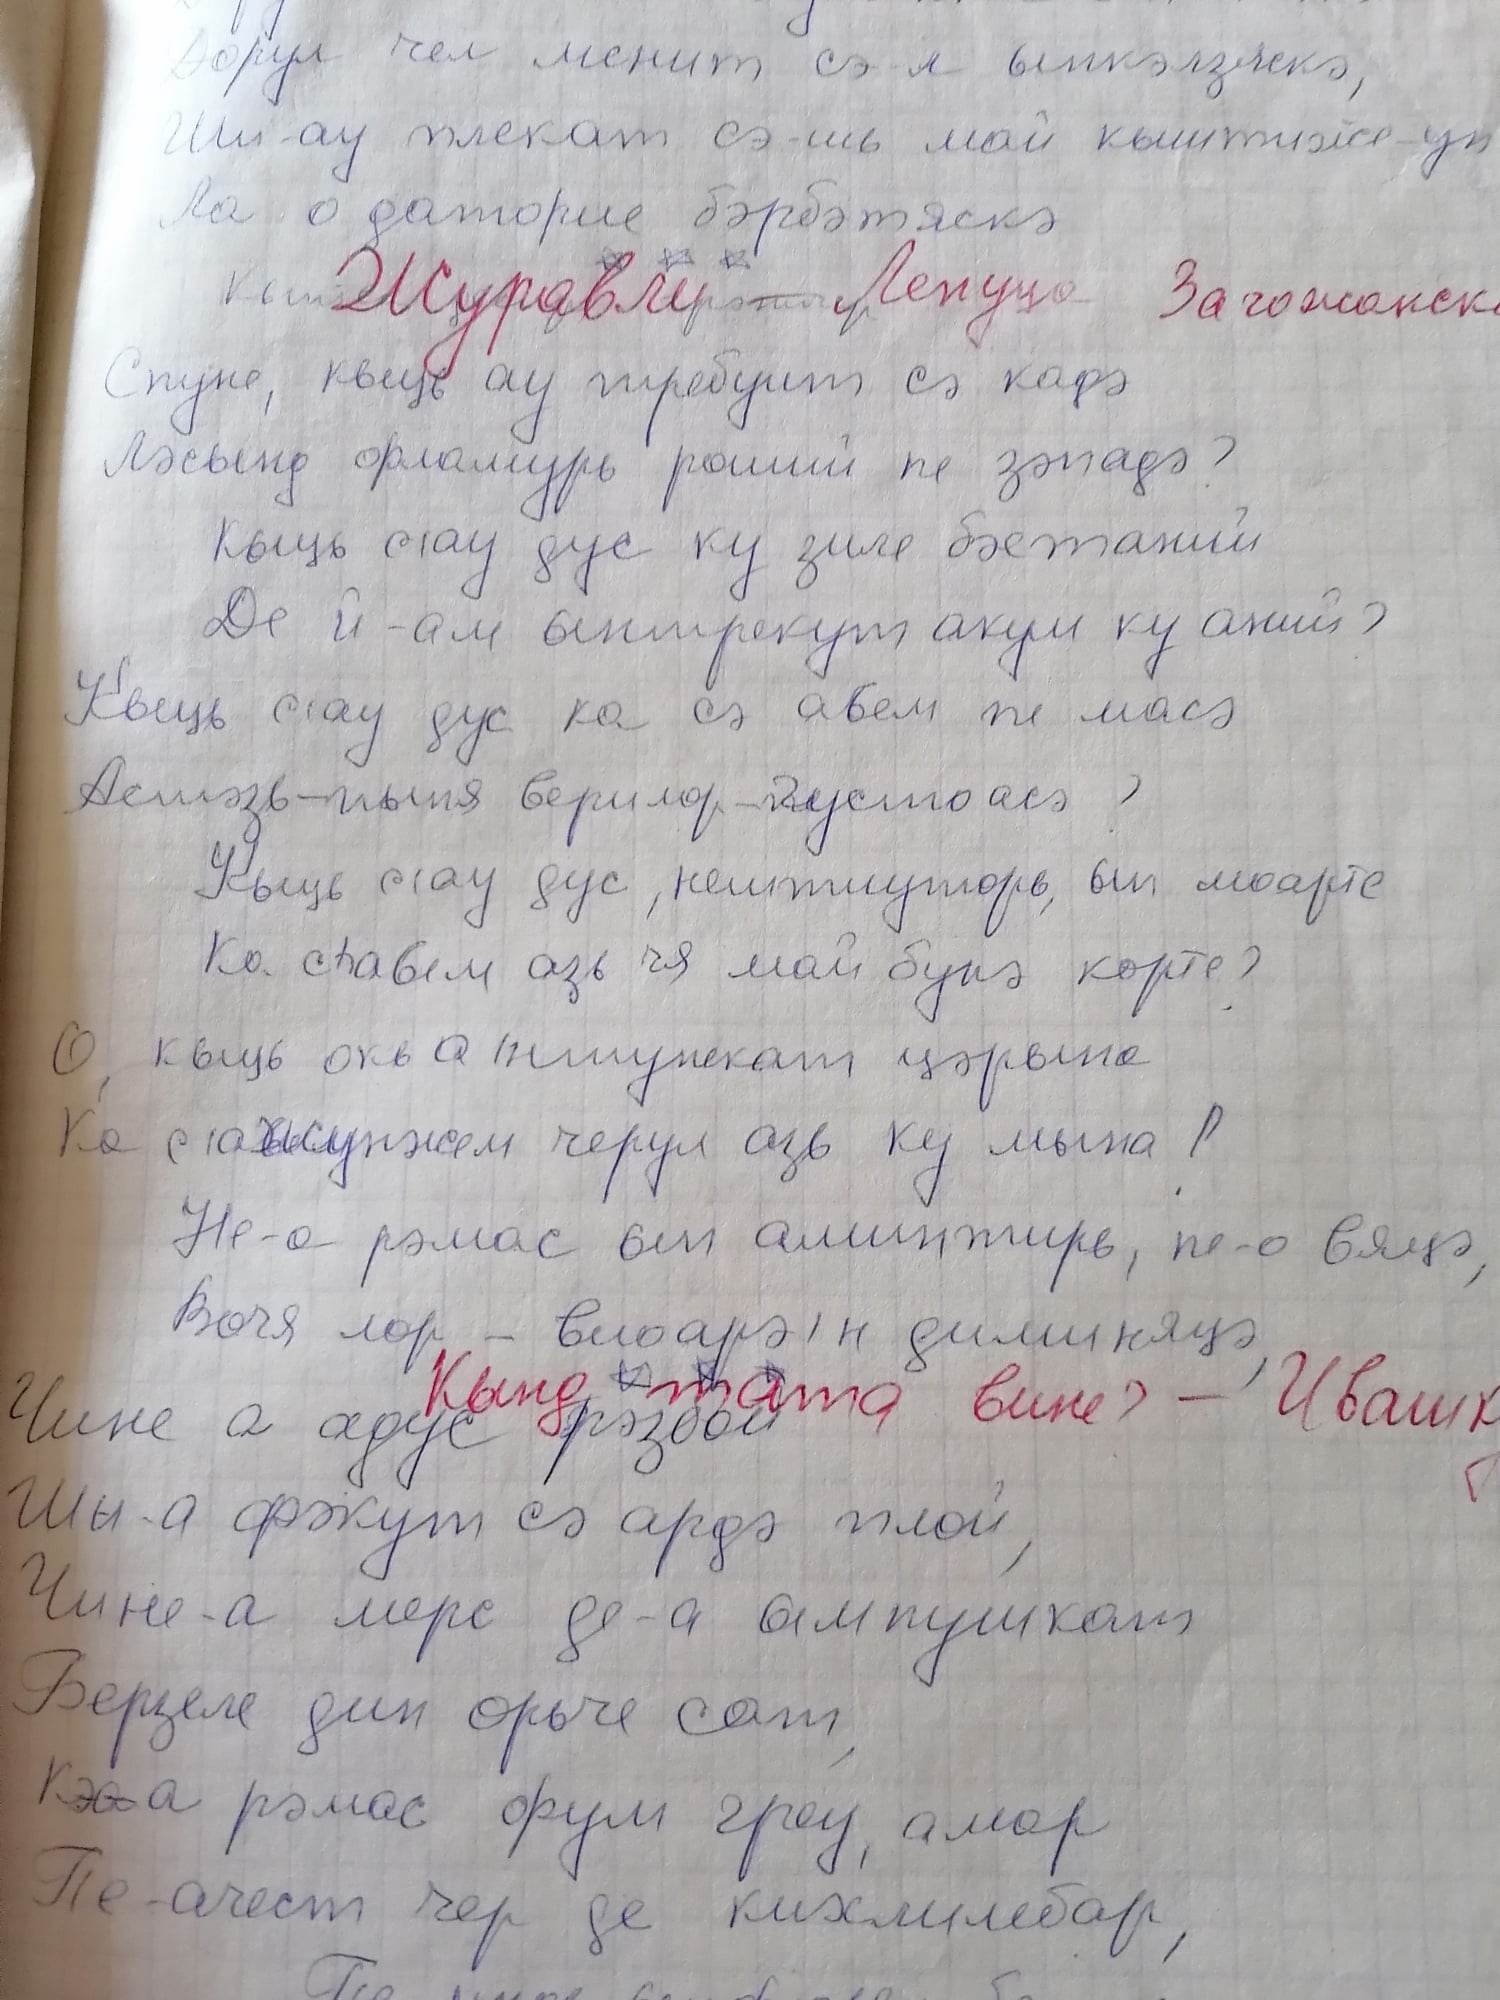 Дорул чел менит сэ-л ымкэлзяскэ,
Ши-ау плекат сэ-шь май кыштиже-ун
Ла о даторие бэрбэтяскэ
Журавлй — Ленуца
Спуне, кыць ау требуит сэ кадэ
Лэсынд фламурь роший пе зэпадэ?
Кыць с'ау дус ку зиле бэстаний
Де й-ам ынтрекут акум ку аний?
Кыць с'ау дус ка сэ авем пе масэ
Астэзь-пыня верилор-густоасэ?
Кыць с'ау дус, немиторь, ын моарте
Ка с'авем азь чя май бунэ карте?
О, кыць окь а'нтунекат цэрына
Ка с'ажунжем черул азь ку мына!
Не-а рэмас ын аминтирь, пе-о вяцэ,
Вочя лор – виоарэ'н диминяцэ,
Кынд тата вине? — Ивашк
Чине а адус рэзбой
Шы-а фэкут сэ ардэ плой,
Чине-а мерс де-а ымпушкат
Берзеле дин орьче сат,
Кэ-а рэмас фум греу, амар
Пе-ачест чер де кихлимбар,